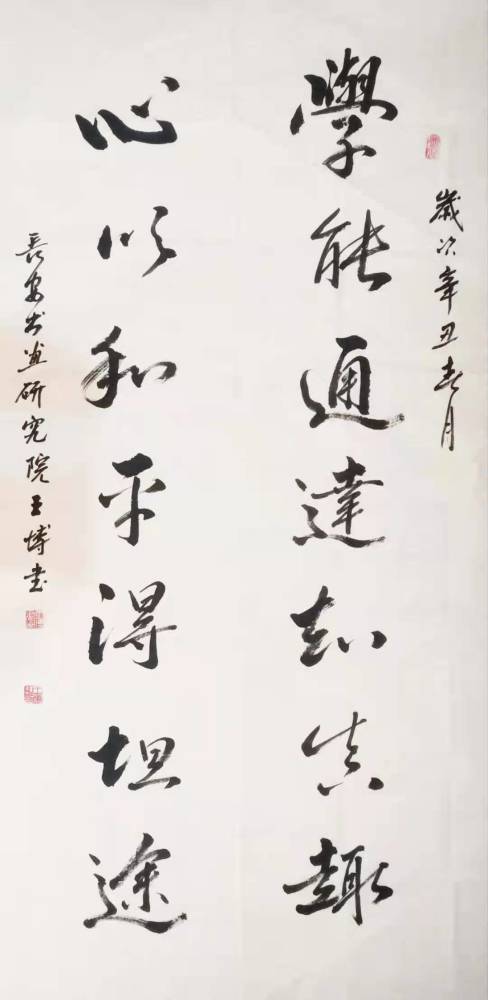 歲次辛丑春月
學能通達知真趣
心以和平得坦途
長安书画研究院王博书